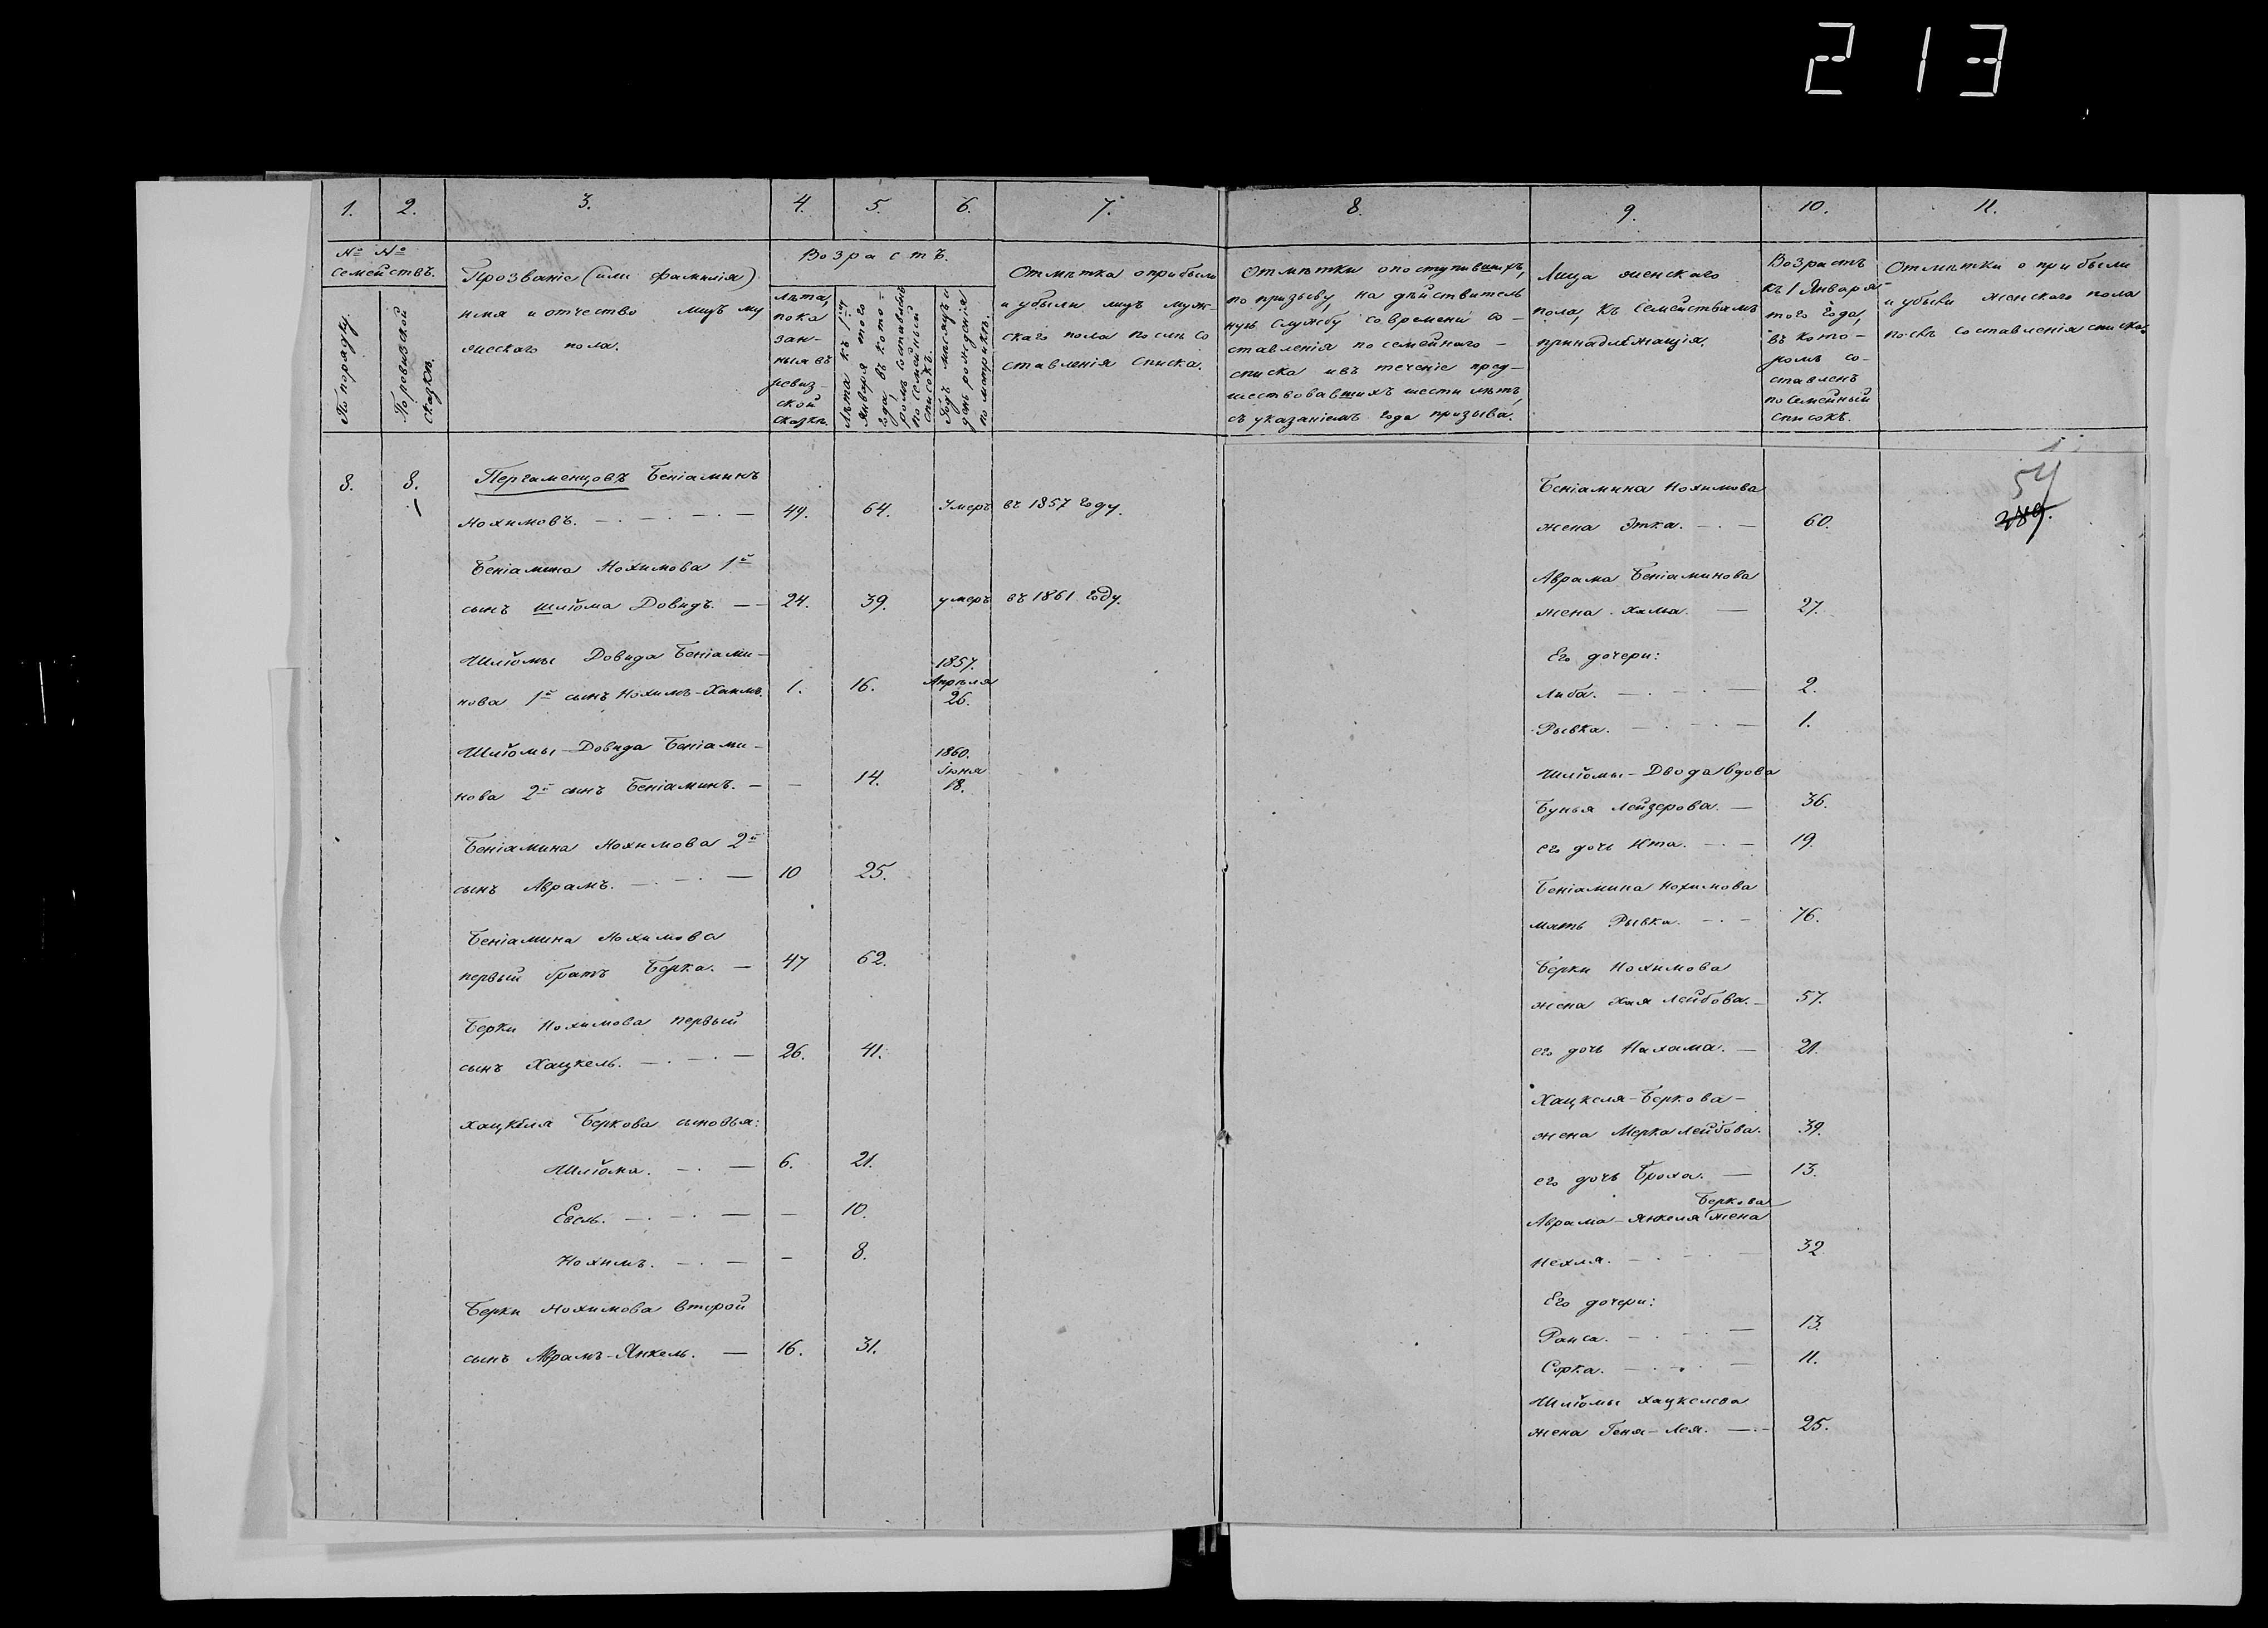 213
1. 2. 3. 4. 5. 6. 7. 8. 9. 10. 11.
№ №
семействъ.
По порядку.
По ревизской
сказкѣ.
Прозваніе (или фамилія)
имя и отчество лицъ му
жескаго пола.
Возрастъ.
Лѣта,
пока
зан-
ныя въ
ревиз
ской
сказкѣ.
Лѣта къ 1му
Января того
года, въ кото-
ромъ составленъ
посемейный
списокъ.
Годъ, мѣсяцъ и
день рожденія
по метрикѣ.
Отмѣтка о прибыли
и убыли лицъ муж-
скаго пола послѣ со
ставленія списка.
Отмѣтки о поступившихъ,
по призыву, на дѣйствитель
ную службу со времени со-
ставленія посемейнаго-
списка и въ теченіе пред-
шествовавшихъ шести лѣтъ,
съ указаніемъ года призыва.
Лица женскаго
пола, къ семействамъ
принадлежащія.
Возрастъ
къ 1 Января
того года,
въ кото-
ромъ со-
ставленъ
посемейный
списокъ.
Отмѣтки о прибыли
и убыли женскаго пола
послѣ составленія списка.
8. 8. Пергаменцовъ Беніаминъ
Нохимовъ. 49. 64. Умеръ въ 1857 году.
Беніамина Нохимова 1й
сынъ Шлёма Довидъ. 24. 39. умеръ въ 1861 году.
Шлёмы Довида Беніами-
нова 1й сынъ Нохимъ-Хаимъ. 1. 16. 1857.
Апрѣля
26.
Шлёмы-Довида Беніами-
нова 2й сынъ Беніаминъ. - - 14. 1860.
Іюня
18.
Беніамина Нохимова 2й
сынъ Аврамъ. 10 25.
Беніамина Нохимова
первый братъ Берка. - 47 62.
Берки Нохимова первый
сынъ Хацкель. 26. 41.
Хацкеля Беркова сыновья:
Шлёма. 6. 21.
Евель. - 10.
Нохимъ. - 8.
Берки Нохимова второй
сынъ Аврамъ-Янкель. - 16. 31.
54
389.
Беніамина Нохимова
жена Этка. 60.
Аврама Беніаминова
жена. 27.
Его дочери:
Либа. 2.
Рывка. 1.
Шлёмы-Двода вдова
Бунья Лейзерова. - 36.
его дочь Ита. 19.
Беніамина Нохимова
мать Рывка. 76.
Берки Нохимова
жена Хая Лейбова. - 57.
его дочь Нахама. - 21.
Хацкеля-Беркова-
жена Мерка Лейбова. 39.
его дочь Броха. - 13.
Беркова
Аврама-Янкеля жена
Нехля. 32
Его дочери:
Раиса. 13.
Сорка. 11.
Шлёмы Хацкелева
жена Геня-Лея. 25.